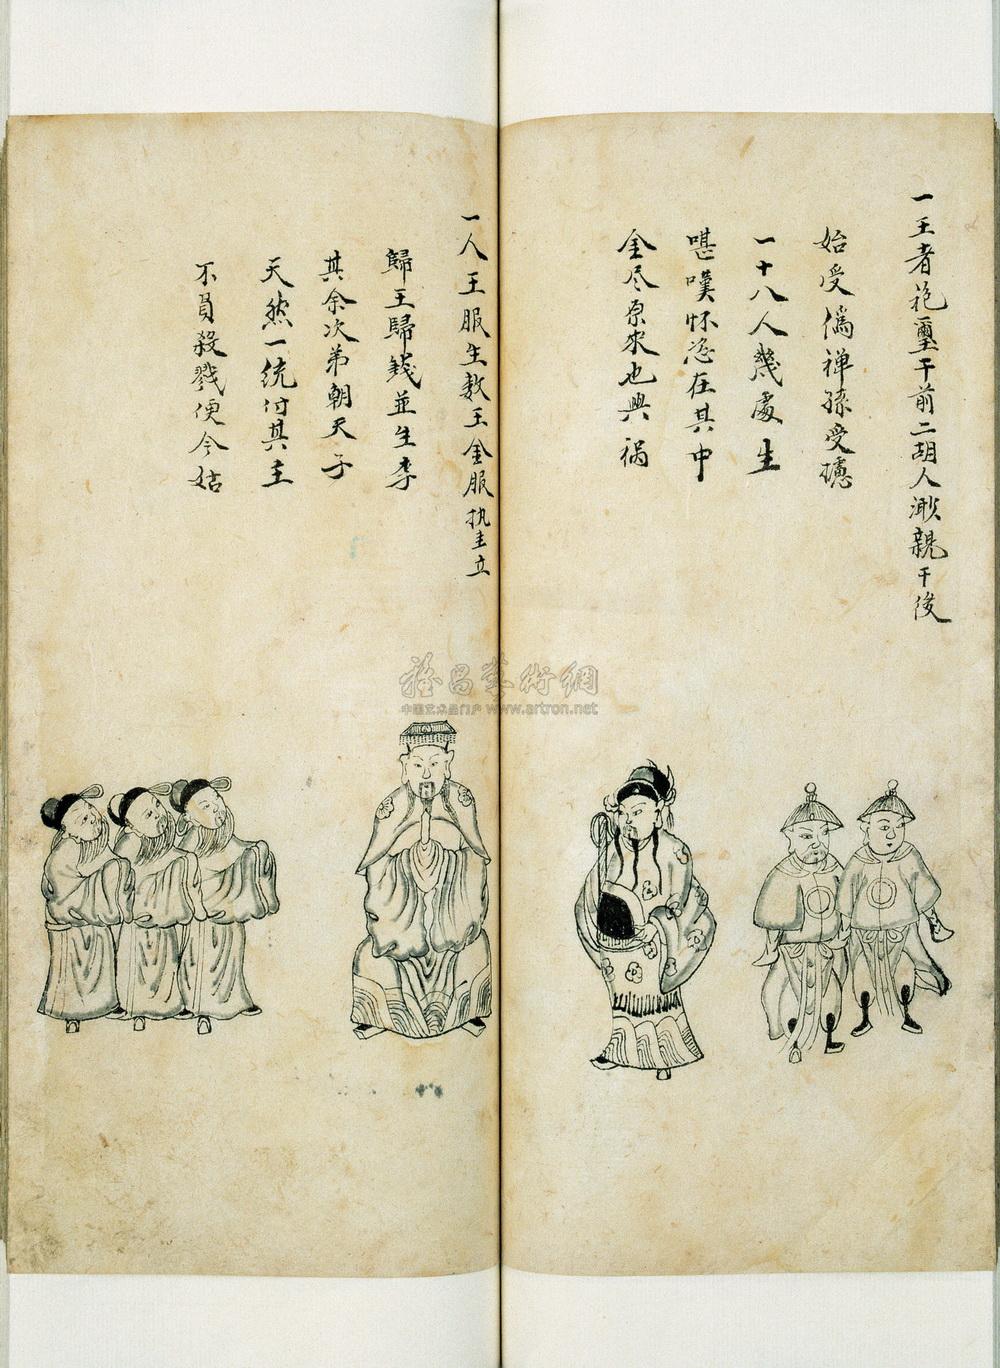 一王者袍璽于前二胡人濑親于後
始受僞禅孫受璁
一十八人幾處生
嘅嘆怀恣在其中
金尽原來也與祸
一人王服生数王金服执圭立
歸王歸錢並生李
其余次弟朝天子
天然一统付其主
不員殺戮便今姑
雅昌藝術網
中国艺术品门户 www.artron.net